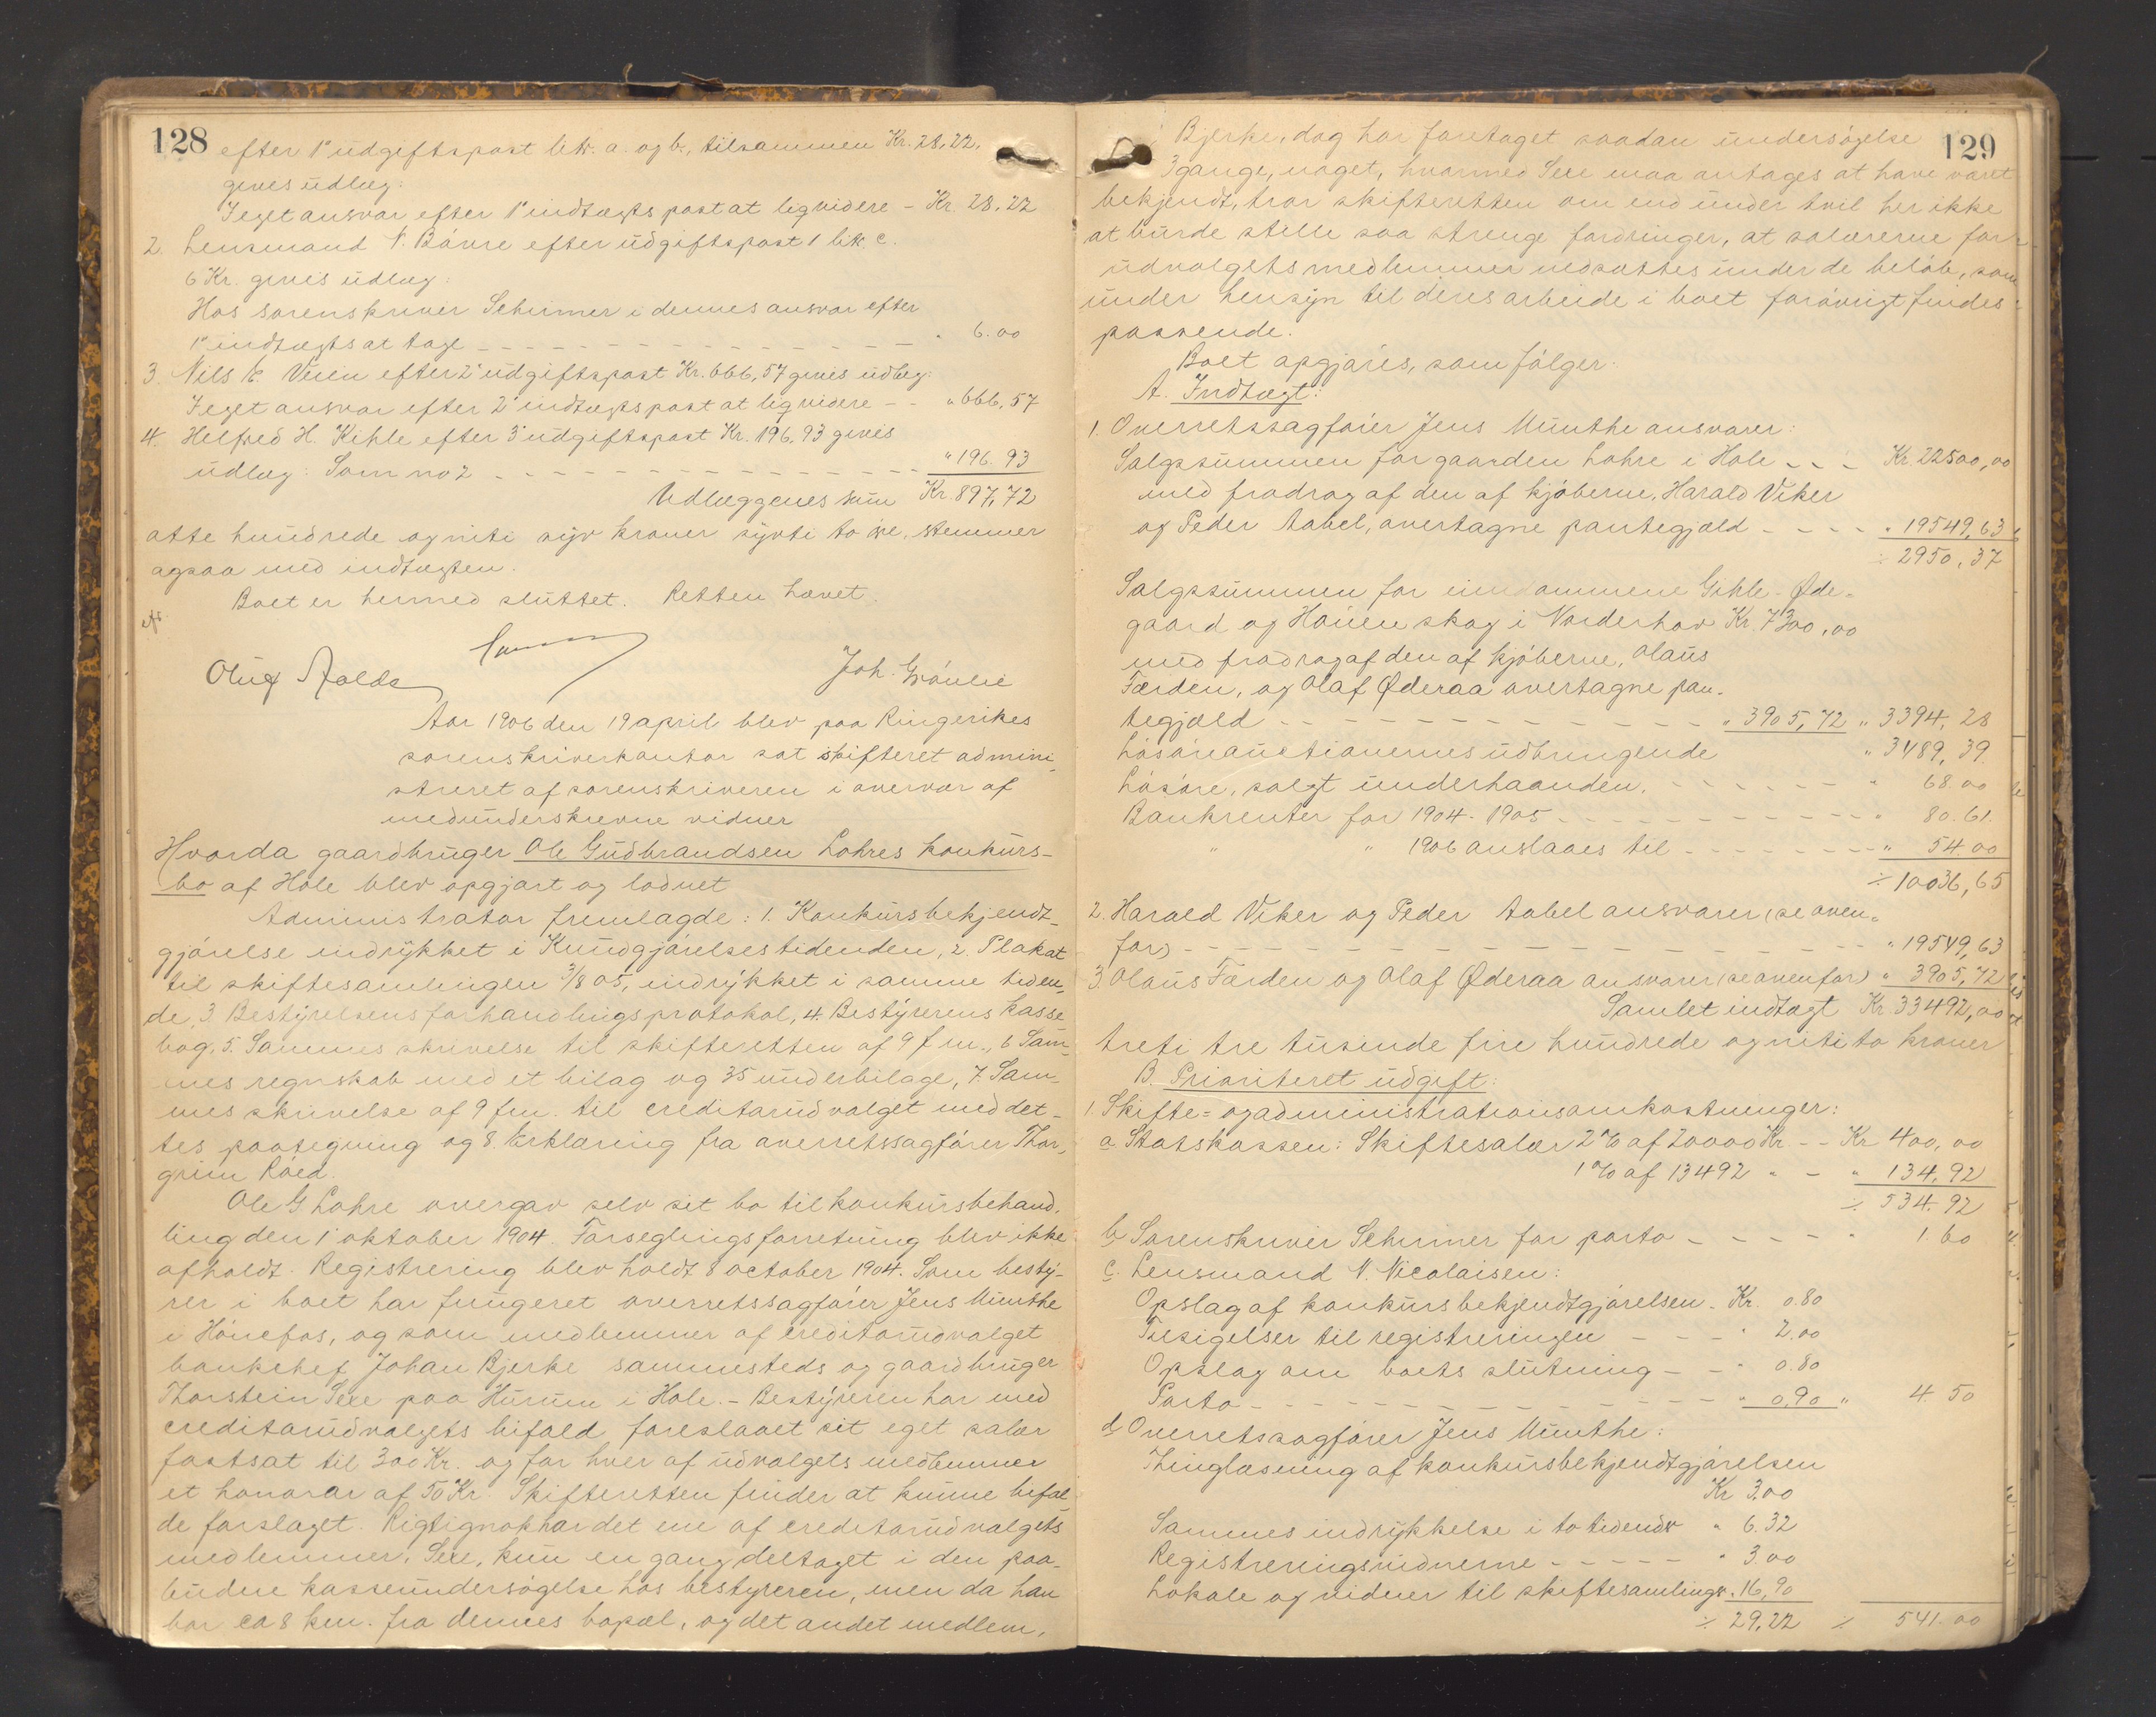 128
efter 1' udgiftspost litr. a. og b., tilsammen Kr. 28,22.
gives udlæg:
I eget ansvar efter 1' indtægtspost at liqvidere - Kr. 28,22
2. Lensmand N. Bårre efter udgiftspost 1 litr. c.
6 Kr. gives udlæg:
Hos sorenskriver Schirmer i dennes ansvar efter
1' indtægts at tage - - - " 6.00
3. Nils K. Veien efter 2' udgiftspost Kr. 666,57 gives udlæg:
I eget ansvar efter 2' indtægtspost at liqvidere - - " 666,57
4. Helfred H. Kihle efter 3' udgiftspost Kr. 196,93 gives
udlæg: Som no 2 - - - " 196.93
Udlæggenes sum Kr. 897,72
otte hundrede og niti syv kroner sytti to øre, stemmer
ogsaa med indtægten.
Boet er hermed sluttet. Retten hævet.
Joh. Grönlie
Aar 1906 den 19 april blev paa Ringerikes
sorenskriverkontor sat skifteret admini-
streret af sorenskriveren i overvær af
medunderskrevne vidner
Hvorda gaardbruger Ole Gudbrandsen Lohres konkurs-
bo af Hole blev opgjort og lodnet
Administrator fremlagde: 1. Konkursbekjendt-
gjørelse indrykket i Kundgjørelsestidenden, 2. Plakat
til skiftesamlingen 3/8 05, indrykket i samme tiden-
de, 3. Bestyrelsens forhandlingsprotokol, 4. Bestyrerens kasse
bog, 5. Sammes skrivelse til skifteretten af 9 f.m., 6 Sam-
mes regnskab med et bilag og 35 underbilage, 7. Sam-
mes skrivelse af 9 f.m. til creditorudvalget med det-
tes paategning og 8. Erklæring fra overretssagfører Thor-
grim Röed.
Ole G Lohre overgav selv sit bo til konkursbehand-
ling den 1' oktober 1904. Forseglingsforretning blev ikke
afholdt. Registrering blev holdt 8 october 1904. Som besty-
rer i boet har fungeret overretssagfører Jens Munthe
i Hönefos, og som medlemmer af creditorudvalget
bankchef Johan Bjerke sammesteds og gaardbruger
Thorstein Sexe paa Hurum i Hole. - Bestyreren har med
creditorudvalgets bifald foreslaaet sit eget salær
fastsat til 300 Kr. og for hver af udvalgets medlemmer
et honorar af 50 Kr. Skifteretten finder at kunne bifal-
de forslaget. Rigtignok har det ene af creditorudvalgets
medlemmer, Sexe, kun en gang deltaget i den paa-
budne kasseundersøgelse hos bestyreren, men da han
bor ca 8 km. fra dennes bopæl, og det andet medlem,
129
Bjerke, dog har foretaget saadan undersøgelse
3 gange, noget, hvormed Sexe maa antages at have været
bekjendt, tror skifteretten om end under tvil her ikke
at burde stille saa strenge fordringer, at salærerne for
udvalgets medlemmer nedsættes under de beløb, som
under hensyn til deres arbeide i boet forøvrigt findes
passende.
Boet opgjøres, som følger:
A. Indtægt:
1. Overretssagfører Jens Munthe ansvarer:
Salgssummen for gaarden Lohre i Hole - - - Kr. 22500,00
med fradrag af den af kjøberne, Harald Viker
og Peder Aabel, overtagne pantegjæld - - - - " 19549,63
÷ 2950,37
Salgssummen for eiendommene Gihle-Øde-
gaard og Hauen skog i Norderhov Kr. 7300,00
med fradrag af den af kjøberne, Olaus
Færden, og Olaf Øderaa overtagne pan-
tegjæld - - - " 3905,72 " 3394,28
Løsøreauctionernes udbringende " 3489,39
Løsøre, solgt underhaanden. - - - " 68.00
Bankrenter for 1904-1905 - - - " 80.61.
" " 1906 anslaaes til - - - " 54.00
÷ 10036,65
2. Harald Viker og Peder Aabel ansvarer (se oven-
for) - - - " 19549,63
3. Olaus Færden og Olaf Øderaa ansvarer (se ovenfor) " 3905,72
Samlet indtægt Kr 33492,00
treti tre tusinde fire hundrede og niti to kroner
B. Prioriteret udgift:
1. Skifte- og administrationsomkostninger:
a. Statskassen: Skiftesalær 2% af 20000 Kr - - Kr 400,00
1% af 13492 " - " 134,92
÷ 534,92
b. Sorenskriver Schirmer for porto - - - - " 1.60
c. Lensmand N. Nicolaisen:
Opslag af konkursbekjendtgjørelsen - Kr. 0.80
Tilsigelser til registreringen - - - " 2.00
Opslag om boets slutning - - " 0.80
Porto - - - " 0,90 " 4.50
d. Overretssagfører Jens Munthe:
Thinglæsning af konkursbekjendtgjørelsen
Kr 3.00
Sammes indrykkelse i to tidender " 6.32
Registreringsvidnerne - - - - - " 3.00
Lokale og vidner til skiftesamlinger " 16,90
÷ 29,22 ÷ 541.00